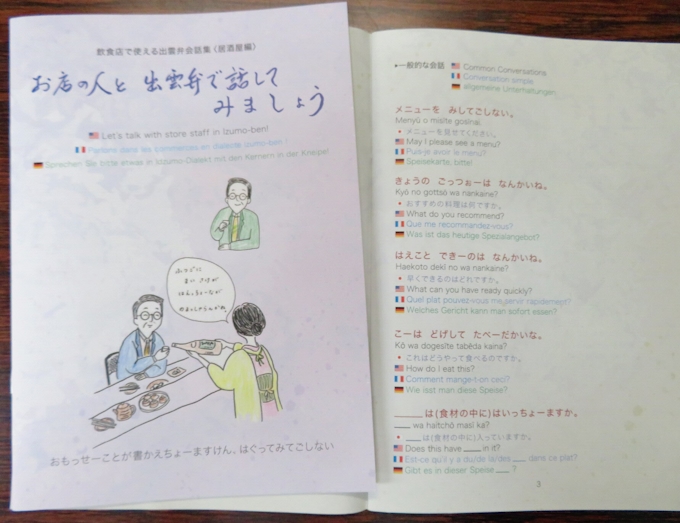 飲食店で使える出雲弁会話集(居酒屋編)
お店の人と 出雲弁で話して
みましょう
Let's talk with store staff in Izumo-ben!
Parlons dans les commerces en dialecte izumo-ben !
Sprechen Sie bitte etwas in Izumo-Dialekt mit den Kernern in der Kneipe!
まい さけが
のまっしゃらんかね
おもっせーことが書かえちょーますけん、はぐってみてごしない
•一般的な会話
Common Conversations
Conversation simple
allgemeine Unterhaltungen
メニューを みしてごしない。
Menyū o misite gosinai.
• メニューを見せてください。
May I please see a menu?
Puis-je avoir le menu?
Speisekarte, bitte!
きょうの ごっつぉーは なんかいね。
Kyō no gottsō wa nankaine?
• おすすめの料理は何ですか。
What do you recommend?
Que me recommandez-vous?
Was ist das heutige Spezialangebot?
はえこと できーのは なんかいね。
Haekoto dekī no wa nankaine?
• 早くできるのはどれですか。
What can you have ready quickly?
Quel plat pouvez-vous me servir rapidement?
Welches Gericht kann man sofort essen?
こーは どげして たべーだかいな。
Kō wa dogesite tabēda kaina?
• これはどうやって食べるのですか。
How do I eat this?
Comment mange-t-on ceci?
Wie isst man diese Speise?
____は(食材の中に)はいっちょーますか。
___ wa haitchō masī ka?
• ___は(食材の中に)入っていますか。
Does this have ___ in it?
Est-ce qu'il y a du/de la/des ___ dans ce plat?
Gibt es in dieser Speise ___ ?
3